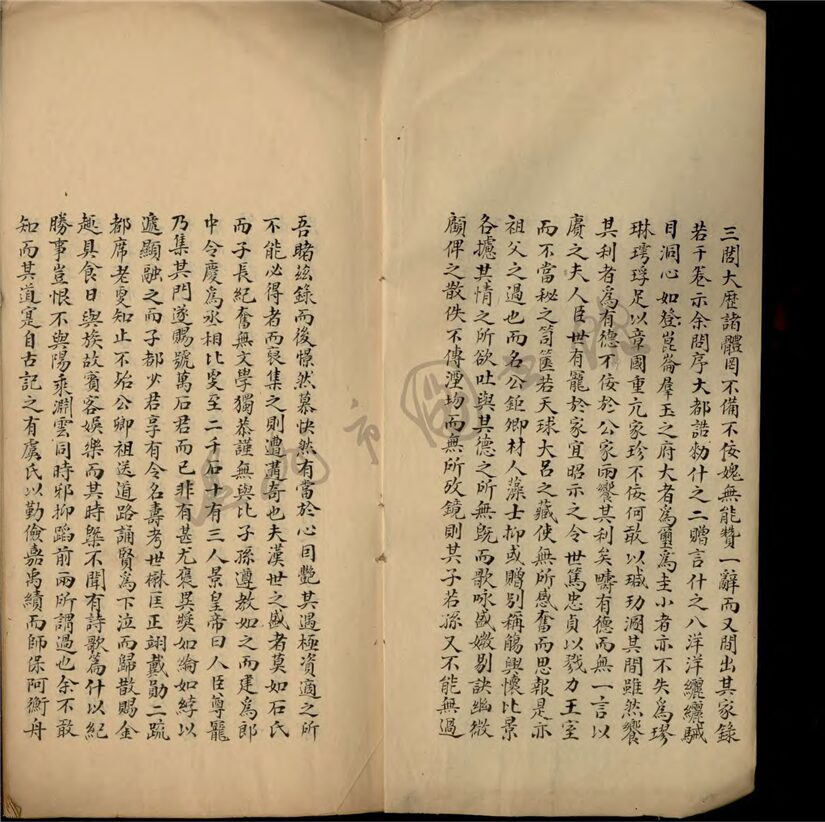 三閣大歷諸體罔不備不佞媿無能贊一辭而又間出其家錄
若干卷示余閱序大都誥勑什之二贈言什之八洋洋纚纚駴
目洞心如登崑崙羣玉之府大者為璽為圭小者亦不失為璆
琳琈琈足以章國重亢家珍不佞何敢以珷玏溷其間雖然饗
其利者為有德不佞於公家兩饗其利矣疇有德而無一言以
賡之夫人臣世有寵於家宜昭示之令世篤忠貞以戮力王室
而不當秘之笥篋若天球大呂之藏使無所感奮而思報是亦
祖父之過也而名公鉅卿材人藻士抑或贈別稱觴興懷比景
各攄其情之所欲吐與其德之所無旣而歌咏盛媺剔訣幽微
顧俾之散佚不傳湮均而無所攷鏡則其子若孫又不能無過
吾睹茲錄而後憬然慕快然有當於心目艷其遇極資適之所
不能必得者而裒集之則遭蓋奇也夫漢世之盛者莫如石氏
而子長紀奮無文學獨恭謹無與比子孫遵教如之而建為郎
中令慶為丞相比叟至二千石十有三人景皇帝曰人臣尊寵
乃集其門遂賜號萬石君而已非有甚尤褒異奬如綸如綍以
遞顯融之而子都少君享有令名壽考世楙匡正翊戴勛二疏
都席老叟知止不殆公卿祖送道路誦賢為下泣而歸散賜金
趣具食日與族故賓客娛樂而其時槩不聞有詩歌篇什以紀
勝事豈恨不與陽乘淵雲同時邪抑蹈前兩所謂過也余不敢
知而其道寔自古記之有虞氏以勤儉嘉禹績而師保阿衡舟